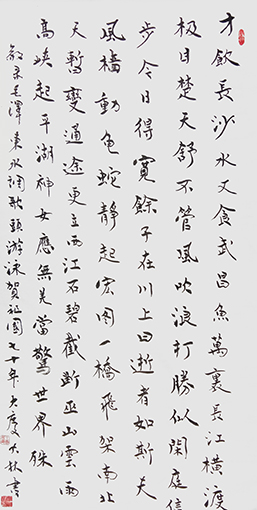 才飲長沙水又食武昌魚萬裏長江橫渡
極目楚天舒不管風吹浪打勝似閑庭信
步今日得寬餘子在川上曰逝者如斯夫
風檣動龜蛇靜起宏图一橋飛架南北
天塹變通途更立西江石壁截斷巫山雲雨
高峽起平湖神女應無恙當驚世界殊
敬录毛澤東水調歌頭游泳賀祖國七十年大慶 書